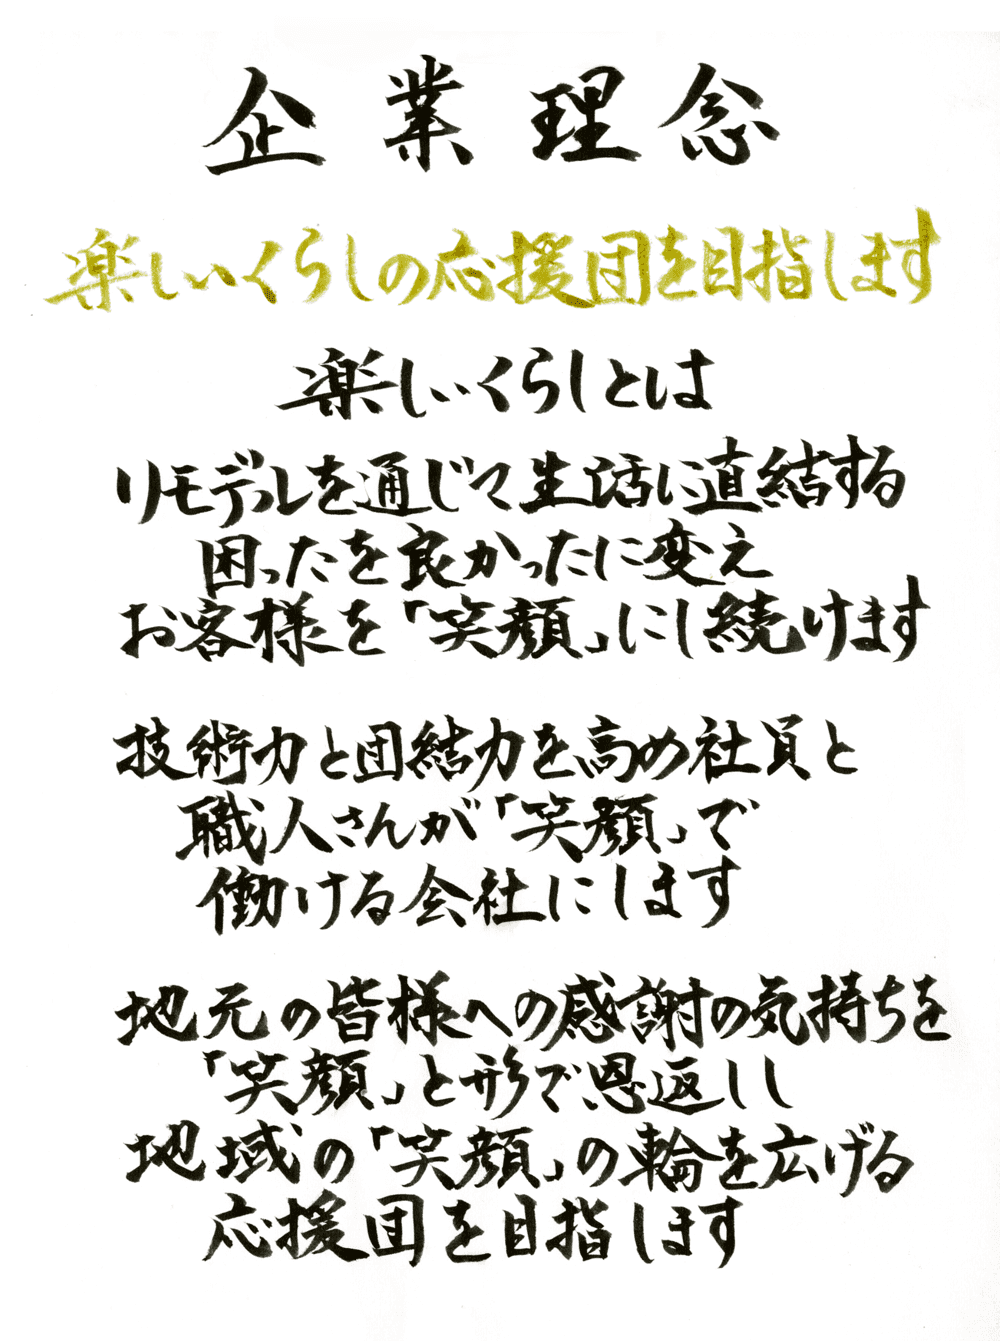 企業理念
楽しいくらしの応援団を目指します
楽しいくらしとは
リモデルを通じて生活に直結する
困ったを良かったに変え
お客様を「笑顔」にし続けます
技術力と団結力を高め社員と
職人さんが「笑顔」で
働ける会社にします
地元の皆様への感謝の気持ちを
「笑顔」と形で恩返しし
地域の「笑顔」の輪を広げる
応援団を目指します